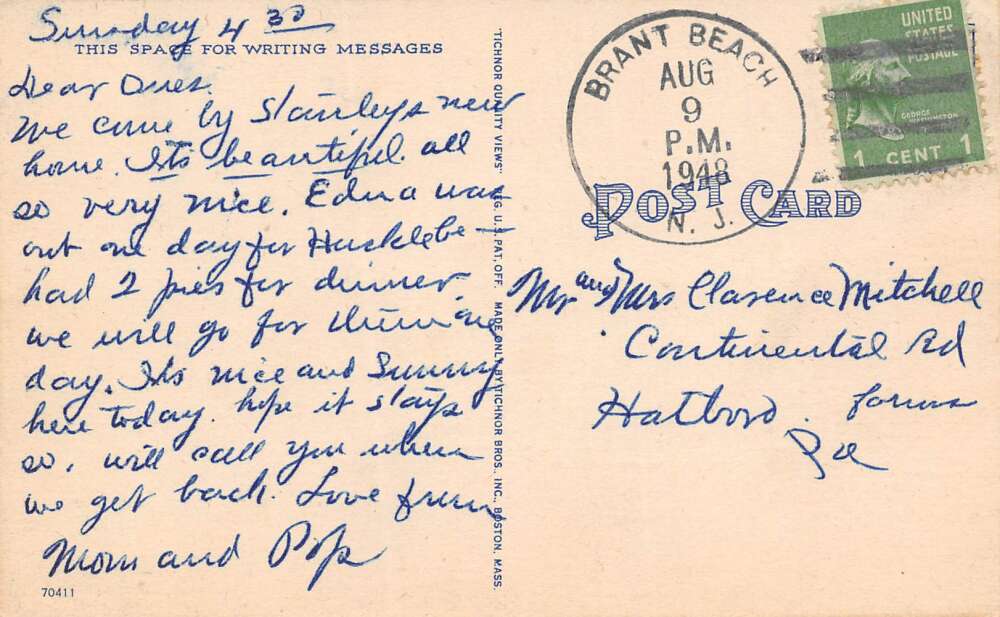 Sunday 4 30
THIS SPACE FOR WRITING MESSAGES
Dear Ones.
We came by Stanleys new
home. Its beautiful. all
so very nice. Edna was
out one day for Hucklebe—
had 2 pies for dinner.
we will go for them one
day. Its nice and Sunny
here today. hope it stays
so. will call you when
we get back. Love from
Mom and Pop
70411
"TICHNOR QUALITY VIEWS" REG. U.S. PAT. OFF. MADE ONLY BY TICHNOR BROS., INC., BOSTON, MASS.
BRANT BEACH
AUG
9
P.M.
1948
N. J.
UNITED
STATES
POSTAGE
GEORGE
WASHINGTON
1 CENT 1
POST CARD
Mr and Mrs Clarence Mitchell
Continental Rd
Hatboro.
Pa